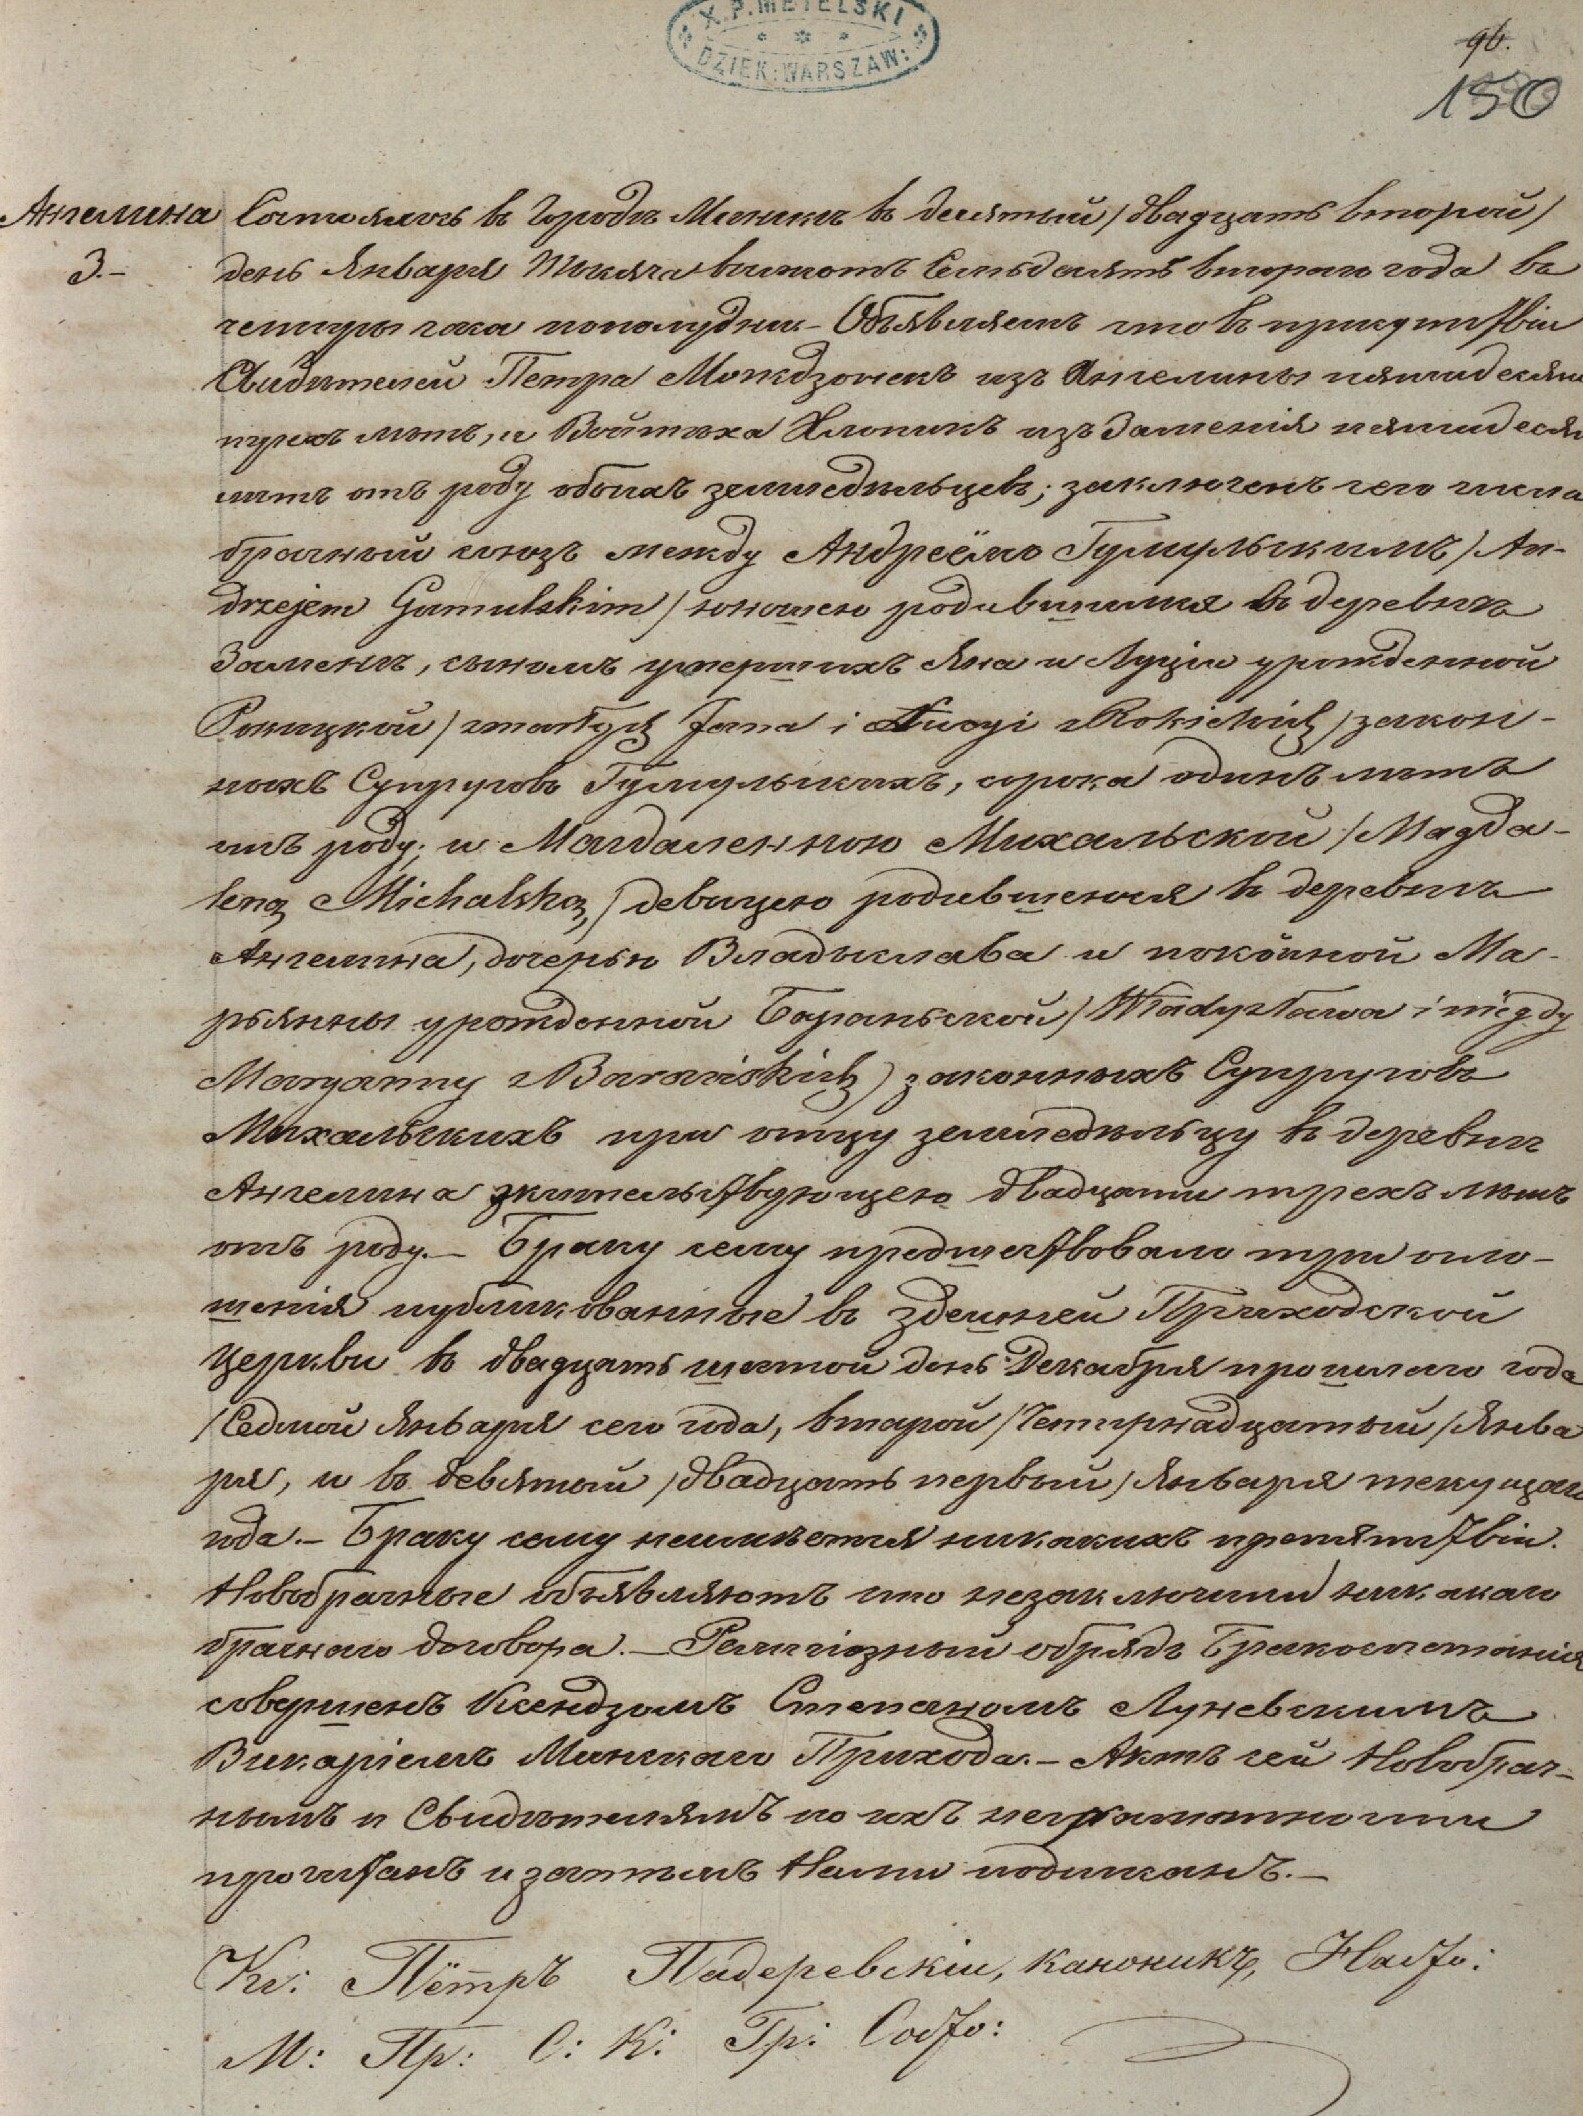 X.P.METELSKI
DZIEK: WARSZAW:
96.
150
Ангелина
3.-
Состоялось въ Городѣ Минскѣ въ десятый /двадцать второй/
день Января тысяча восемьсотъ семьдесятъ втораго года въ
четыре часа пополудни – Объявляемъ что въ присутствіи
Свидѣтелей Петра Мовкдзонекъ изъ Ангелины пятидесяти
трехъ лѣтъ, и Войтѣха Хлопикъ изъ Заменія пятидесяти
лѣтъ отъ роду обоихъ земледѣльцевъ; заключенъ сего числа
брачный союзъ между Андреёмъ Гумульскимъ / An-
drzejem Gumulskim / юношею родившимся въ деревнѣ
Заменѣ, сыномъ умершихъ Яна и Луціи урожденной
Рокицкой / zmarłych Jana i Łucyi z Rokickich / закон-
ныхъ Супруговъ Гумульскихъ, сорока одинъ лѣтъ
отъ роду; и Магдаленною Михальской / Magda-
leną Michalską, / девицею родившеюся въ деревнѣ
Ангелина, дочерью Владыслава и покойной Ма-
рьянны урожденной Бараньской / Władysława i niegdy
Maryanny z Barańskich) законныхъ Супруговъ
Михальскихъ при отцу земледѣльцу въ деревнѣ
Ангелина жительствующею двадцати трехъ лѣтъ
отъ роду. – Браку сему предшествовало три огло-
шенія публикованные въ здешней Приходской
Церкви въ двадцать шестой день Декабря прошлаго года
/Седмой Января сего года, второй /Четырнадцатый/ Янва
ря, и въ девятый /двадцать первый/ Января текущаго
года. – Браку сему неимѣется никакихъ препятствіи.
Новобрачные объявляютъ что незаключили никакаго
брачнаго договора. – Религіозный обрядъ Бракосочетанія
совершенъ Ксендзомъ Степаномъ Луневскимъ
Викаріемъ Минскаго Прихода. – Актъ сей Новобрач-
нымъ и Свидѣтелямъ по ихъ неграмотности
прочитанъ и затѣмъ Нами подписанъ. –
Кс: Пётръ Падеревскіи, каноникъ, Насто:
М: Пр: С: К: Гр: Состо: